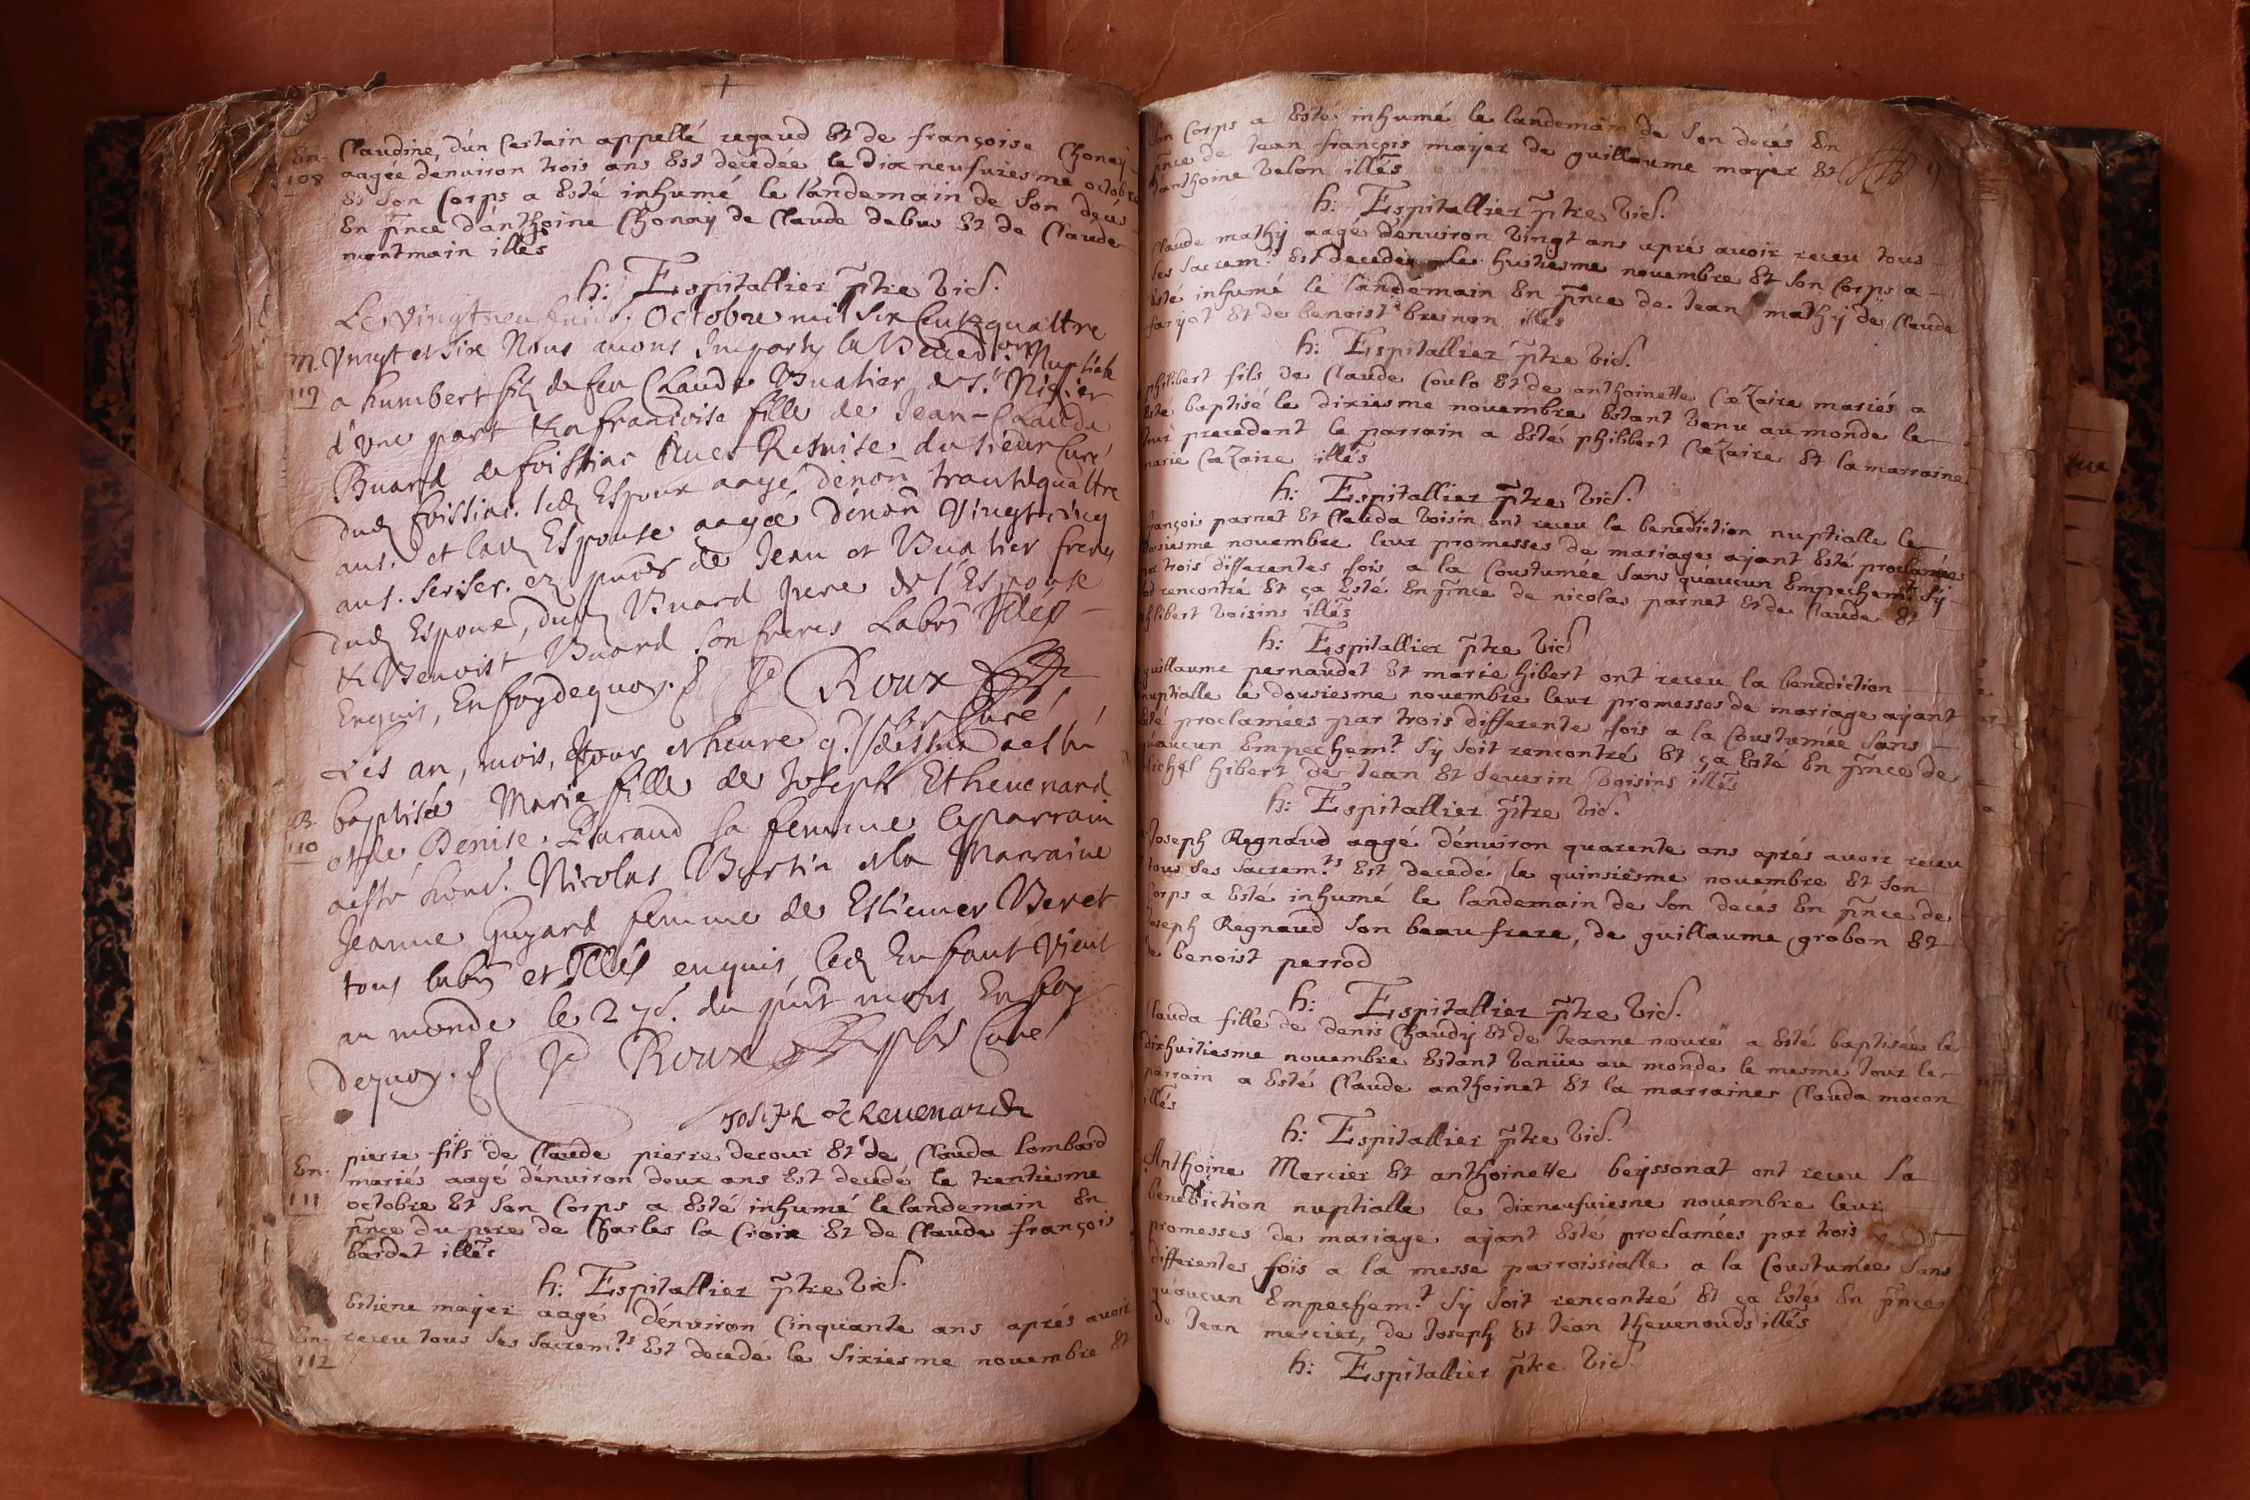 En. Claudine, d'un Certain appellé regaud Et de françoise Chonay
108 aagée denuiron trois ans Est decedée le dix neufuiesme octobre
Et son Corps a Esté inhumé le landemain de son decés
En p̃nce d'anthoine Chonay de Claude debus Et de Claude
montmain illés
h: Espitallier p̃tre vic̃.
Le vingt Octobre mil six Cent quattre
M. vingt et six Nous auons Imparty la Bened.on Nuptiale
119 a humbert fils de feu Claude Buatier de s.t Nizier
d'vne part Et a francoise fille de Jean-Claude
Buard de foissiac Auec Remise du sieur Curé
dud foissiac. led Espoux aagé d'enon trante quattre
ans. et lad Espouse aagée d'enon vingt cinq
ans. en pñces de Jean et Buatier freres
dud Espoux, dud Buard Pere de l'Espouse
Et Benoist Buard son freres Labrs Illés
Enquis, En foy de quoy. Roux
Curé
Lés an, mois, Jour et heure q. dessus a esté
B. baptisée Marie fille de Joseph Etheuenard
110 et de Denise Paraud sa femme le parrain
a esté hon. Nicolas Burtin et la Marraine
Jeanne Guyard femme de Estienner Beret
tous labrs et Illés enquis, led Enfant vient
au monde le 27e. du pñt mois En foy
dequoy. Roux Curé
Joseph Etheuenard
En. pierre fils de Claude pierre decour Et de Clauda lombard
111 mariés aagé dénuiron deux ans Est decedé le trentiesme
octobre Et son Corps a Esté inhumé le landemain En
p̃nce du pere de Charles la Croix Et de Claude françois
bardet illés
h: Espitallier p̃tre vic̃.
Estiene mayer aagé dénuiron Cinquante ans aprés auoir
En. receu tous ses sacrem.ts Est decedé le sixiesme nouembre Et
112
son Corps a Esté inhumé le landemain de son decés En
p̃nce de Jean françois mayer de guillaume mayer Et
d'anthoine velon illés
h: Espitallier p̃tre vic̃.
Claude mathy aagé dénuiron vingt ans aprés avoir receu tous
ses sacrem.ts Est decedée le huitiesme nouembre Et son Corps a
Esté inhumé le landemain En p̃nce de Jean mathy de Claude
farjot Et de benoist brunon illés
h: Espitallier p̃tre vic̃.
philibert fils de Claude Coulo Et de anthoinette Cæzaire mariés a
Esté baptisé le dixiesme nouembre Estant venu au monde le
Jour precedent le parrain a Esté philibert Cæzaire Et la marraine
marie Cæzaire illés
h: Espitallier p̃tre vic̃.
françois parnet Et Clauda voisin ont receu la benediction nuptialle le
nouembre leur promesses de mariages ajant Esté proclamées
par trois differentes fois a la Coustumée sans qu'aucun Empechem.t sÿ
soit rencontré Et ça Esté En p̃nce de nicolas parnet Et de Claude Et
philibert voisins illés
h: Espitallier p̃tre vic̃
guillaume pernaudet Et marie hibert ont receu la benediction
nuptialle le dousiesme nouembre leur promesses de mariage ajant
Esté proclamées par trois differente fois a la Coustumée sans
qu'aucun Empechem.t sÿ soit rencontré Et ça Esté En p̃nce de
Michel hibert de Jean Et seuerin voisins illés
h: Espitallier p̃tre vic̃.
Joseph Regnaud aagé dénuiron quarente ans aprés avoir receu
tous ses sacrem.ts Est decedé le quinsiesme nouembre Et son
Corps a Esté inhumé le landemain de son decés En p̃nce de
Joseph Regnaud son beau frere, de guillaume grobon Et
de benoist perrod
h: Espitallier p̃tre vic̃.
Clauda fille de denis Chaudÿ Et de Jeanne a Esté baptisées le
dixhuitiesme nouembre Estant venüe au monde le mesme Jour le
parrain a Esté Claude anthoinet Et la marraines Clauda mocon
illés
h: Espitallier p̃tre vic̃.
Anthoine Mercier Et anthoinette beyssonat ont receu la
benediction nuptialle le dixneufuiesne nouembre leur
promesses de mariage ajant Esté proclamées par trois
differentes fois a la messe parroissialle a la Coustumée sans
qu'oucun Empechem.t sÿ soit rencontré Et ça Esté En p̃nces
de Jean mercier, de Joseph Et Jean theuenouds illés
h: Espitallier p̃tre vic̃.